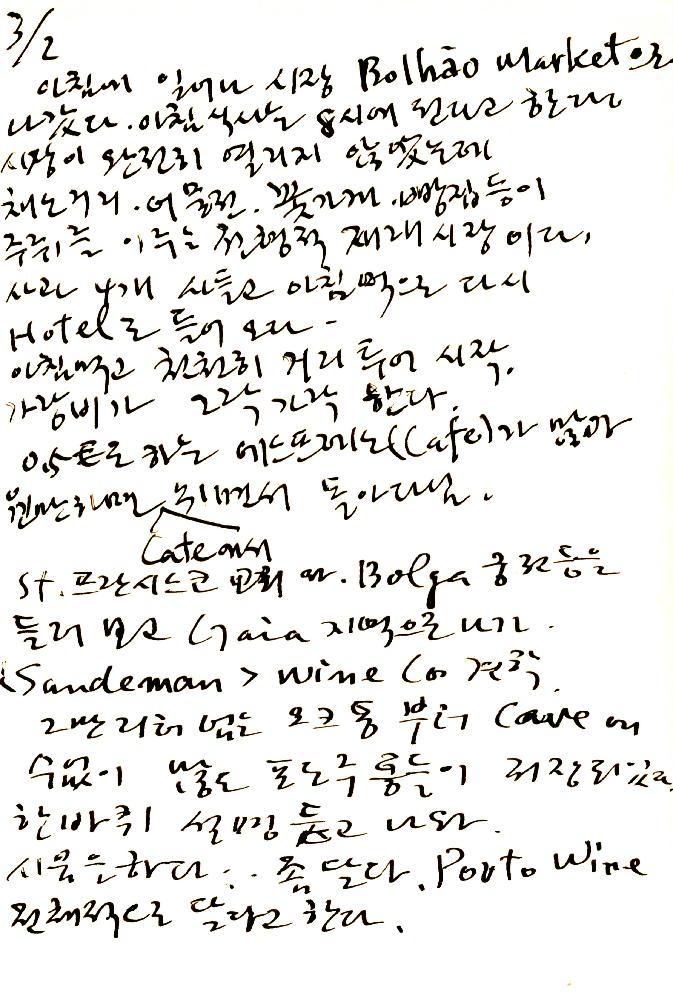 3/2
아침에 일어나 시장 Bolhão Market으로
나갔다. 아침식사는 8시에 된다고 한다
시장이 완전히 열리지 않았는데
채소거리. 어물전. 꽃가게. 빵집등이
주위를 이루는 전형적 재래시장이다,
사과 4개 사들고 아침먹으로 다시
Hotel로 들어 오다 -
아침먹고 천천히 거리 투어 시작.
가랑비가 오락가락 한다.
0.5€로 하는 에스프레소(Cafe)가 많아
쉬면서 돌아다님.
Cafe에서
St. 프란시스코 교회 와. Bolga 궁전등을
들러 보고 Gaia 지역으로 나가.
<Sandeman> Wine Co 견학.
오크통 부터 Cave에
수없이 많은 포도주 통들이 저장되있고
한바퀴 설명 듣고 나와.
시음을하다... 좀 달다. Porto Wine
전체적으로 달다고 한다.